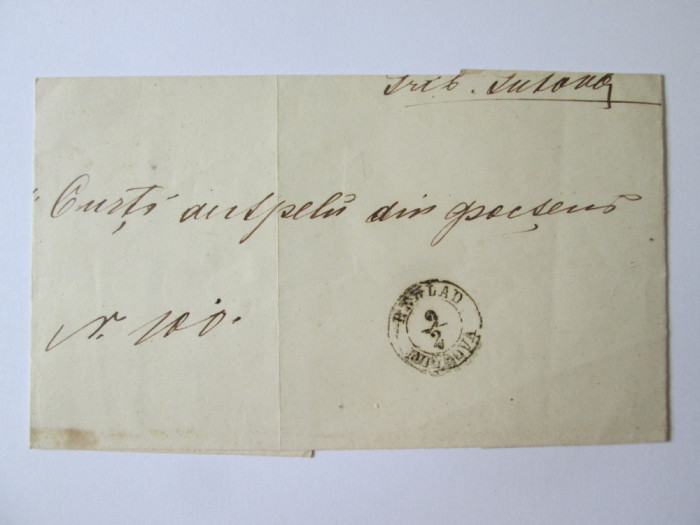 Trib. Tutova
Curți de Apelŭ din Focșeni
N. 100.
BERLAD
9/2
MOLDOVA